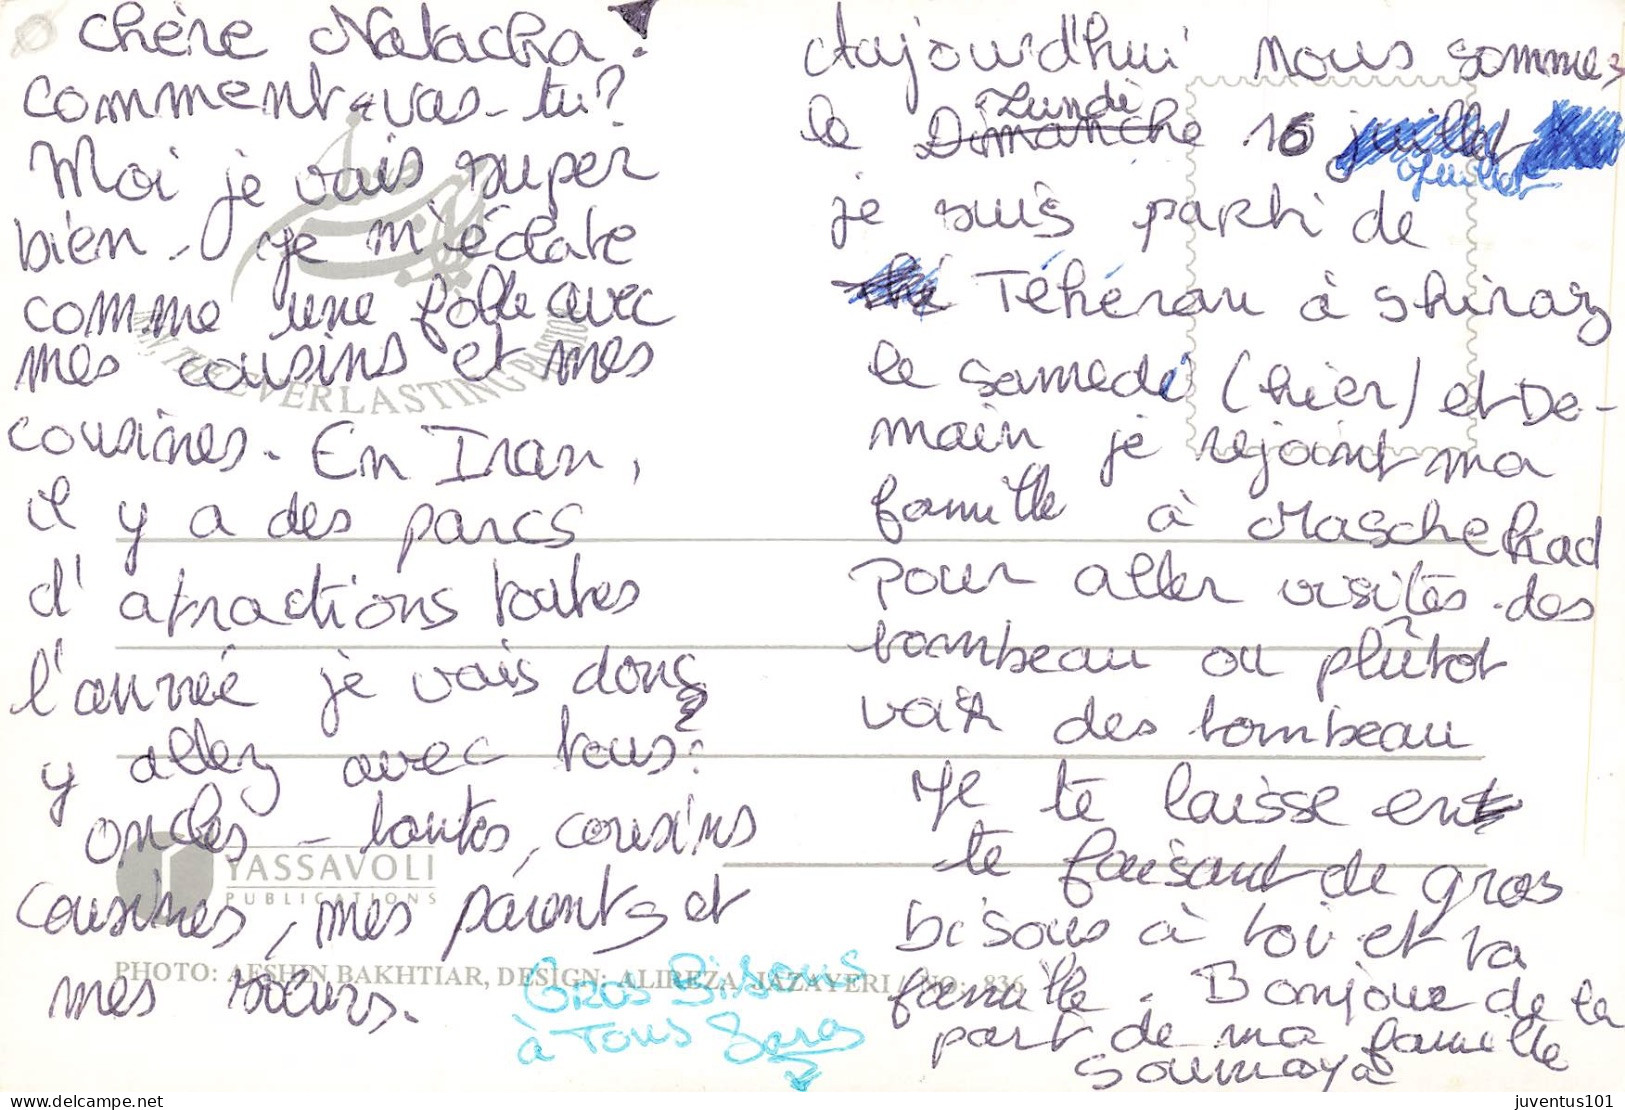 chère Natacha !
comment-vas-tu?
Moi je vais super
bien. je m'éclate
comme une folle avec
mes cousins et mes
cousines. En Iran,
il y a des parcs
d'atractions toutes
l'année je vais donc
y allez avec tous
oncles - tantes, cousins
cousines, mes parents et
mes soeurs.
Gros Bisous
à Tous Sara
Aujourd'hui nous sommes
le Dimanche Lundi 16 juillet
Juillet
je suis parti de
Téhéran à Shiraz
le samedi (hier) et De-
main je rejoint ma
famille à Maschehad
pour aller visités des
tombeau ou plûtot
voir des tombeau
Je te laisse en
te faisant de gros
bisous à toi et ta
famille. Bonjour de la
part de ma famille
Soumaya
IRAN, THE EVERLASTING PASTICHE
YASSAVOLI
PUBLICATIONS
PHOTO: AFSHIN BAKHTIAR, DESIGN: ALIREZA JAZAYERI / NO: 836
delcampe.net
juventus101